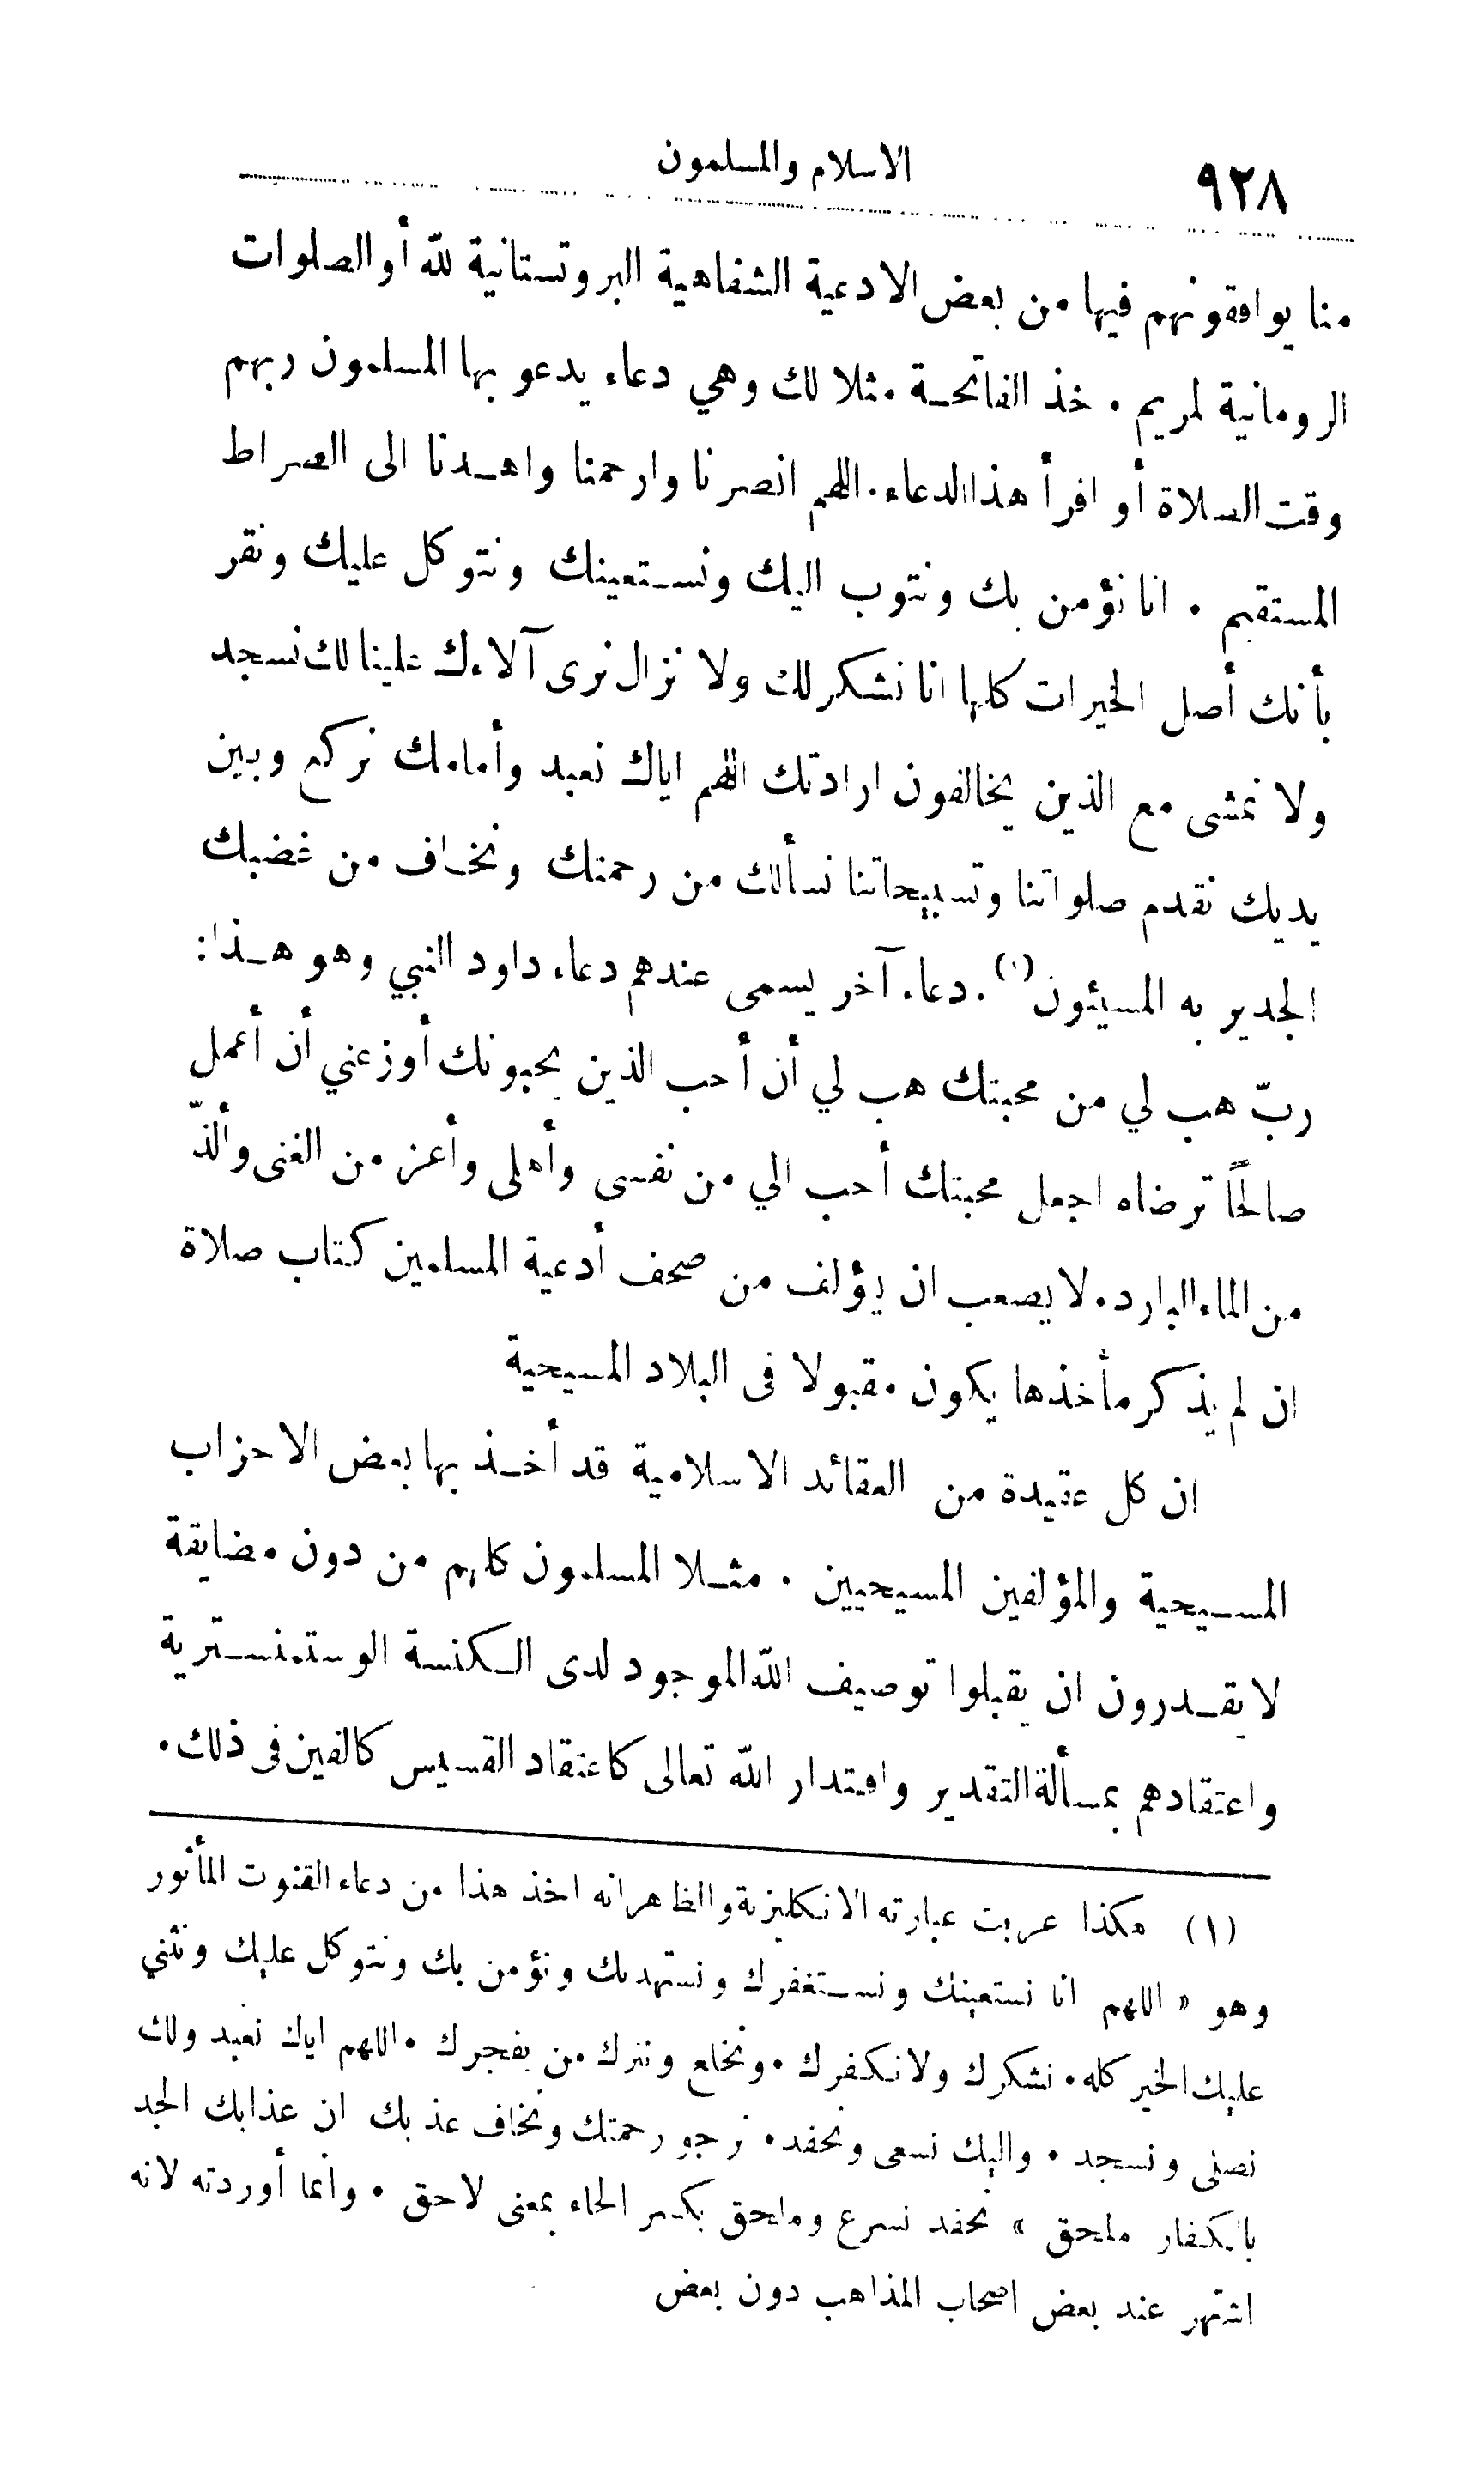 ٩٢٨
الاسلام والمسلمون
منا يوافقونهم فيها من بعض الادعية الشفاهية البروتستانية لله أو الصلوات
الرومانية لمريم . خذ الفاتحة مثلا لك وهي دعاء يدعو بها المسلمون ربهم
وقت الصلاة أو اقرأ هذا الدعاء. اللهم انصرنا وارحمنا واهدنا الى الصراط
المستقيم . انا نؤمن بك ونتوب اليك ونستعينك ونتوكل عليك ونقر
بأنك أصل الخيرات كلها انا نشكر لك ولا نزال نرى آلاءك علينا لك نسجد
ولا نمشى مع الذين يخالفون ارادتك اللهم اياك نعبد وأمامك نركع وبين
يديك نقدم صلواتنا وتسبيحاتنا نسألك من رحمتك ونخاف من غضبك
الجدير به المسيئون (١). دعاء آخر يسمى عندهم دعاء داود النبي وهو هذا:
ربّ هب لي من محبتك هب لي أن أحب الذين يحبونك أوزعني أن أعمل
صالحًا ترضاه اجعل محبتك أحب الي من نفسى وأهلى وأعز من الغنى وألذّ
من الماء البارد. لا يصعب ان يؤلف من صحف أدعية المسلمين كتاب صلاة
ان لم يذكر مأخذها يكون مقبولا فى البلاد المسيحية
ان كل عقيدة من العقائد الاسلامية قد أخذ بها بعض الاحزاب
المسيحية والمؤلفين المسيحيين . مثلا المسلمون كلهم من دون مضايقة
لا يقدرون ان يقبلوا توصيف الله الموجود لدى الكنسة الوستمنسترية
واعتقادهم بمسألة التقدير واقتدار الله تعالى كاعتقاد القسيس كالفين فى ذلك .
(١) هكذا عربت عبارته الانكليزية والظاهر انه اخذ هذا من دعاء القنوت المأثور
وهو « اللهم انا نستعينك ونستغفرك ونستهديك ونؤمن بك ونتوكل عليك ونثني
عليك الخير كله . نشكرك ولا نكفرك . ونخلع ونترك من يفجرك . اللهم اياك نعبد ولك
نصلى ونسجد . واليك نسعى ونحفد . نرجو رحمتك ونخاف عذبك ان عذابك الجد
بالكفار ملحق » نحفد نسرع وملحق بكسر الحاء بمعنى لاحق . وانما أوردته لانه
اشتهر عند بعض اصحاب المذاهب دون بعض